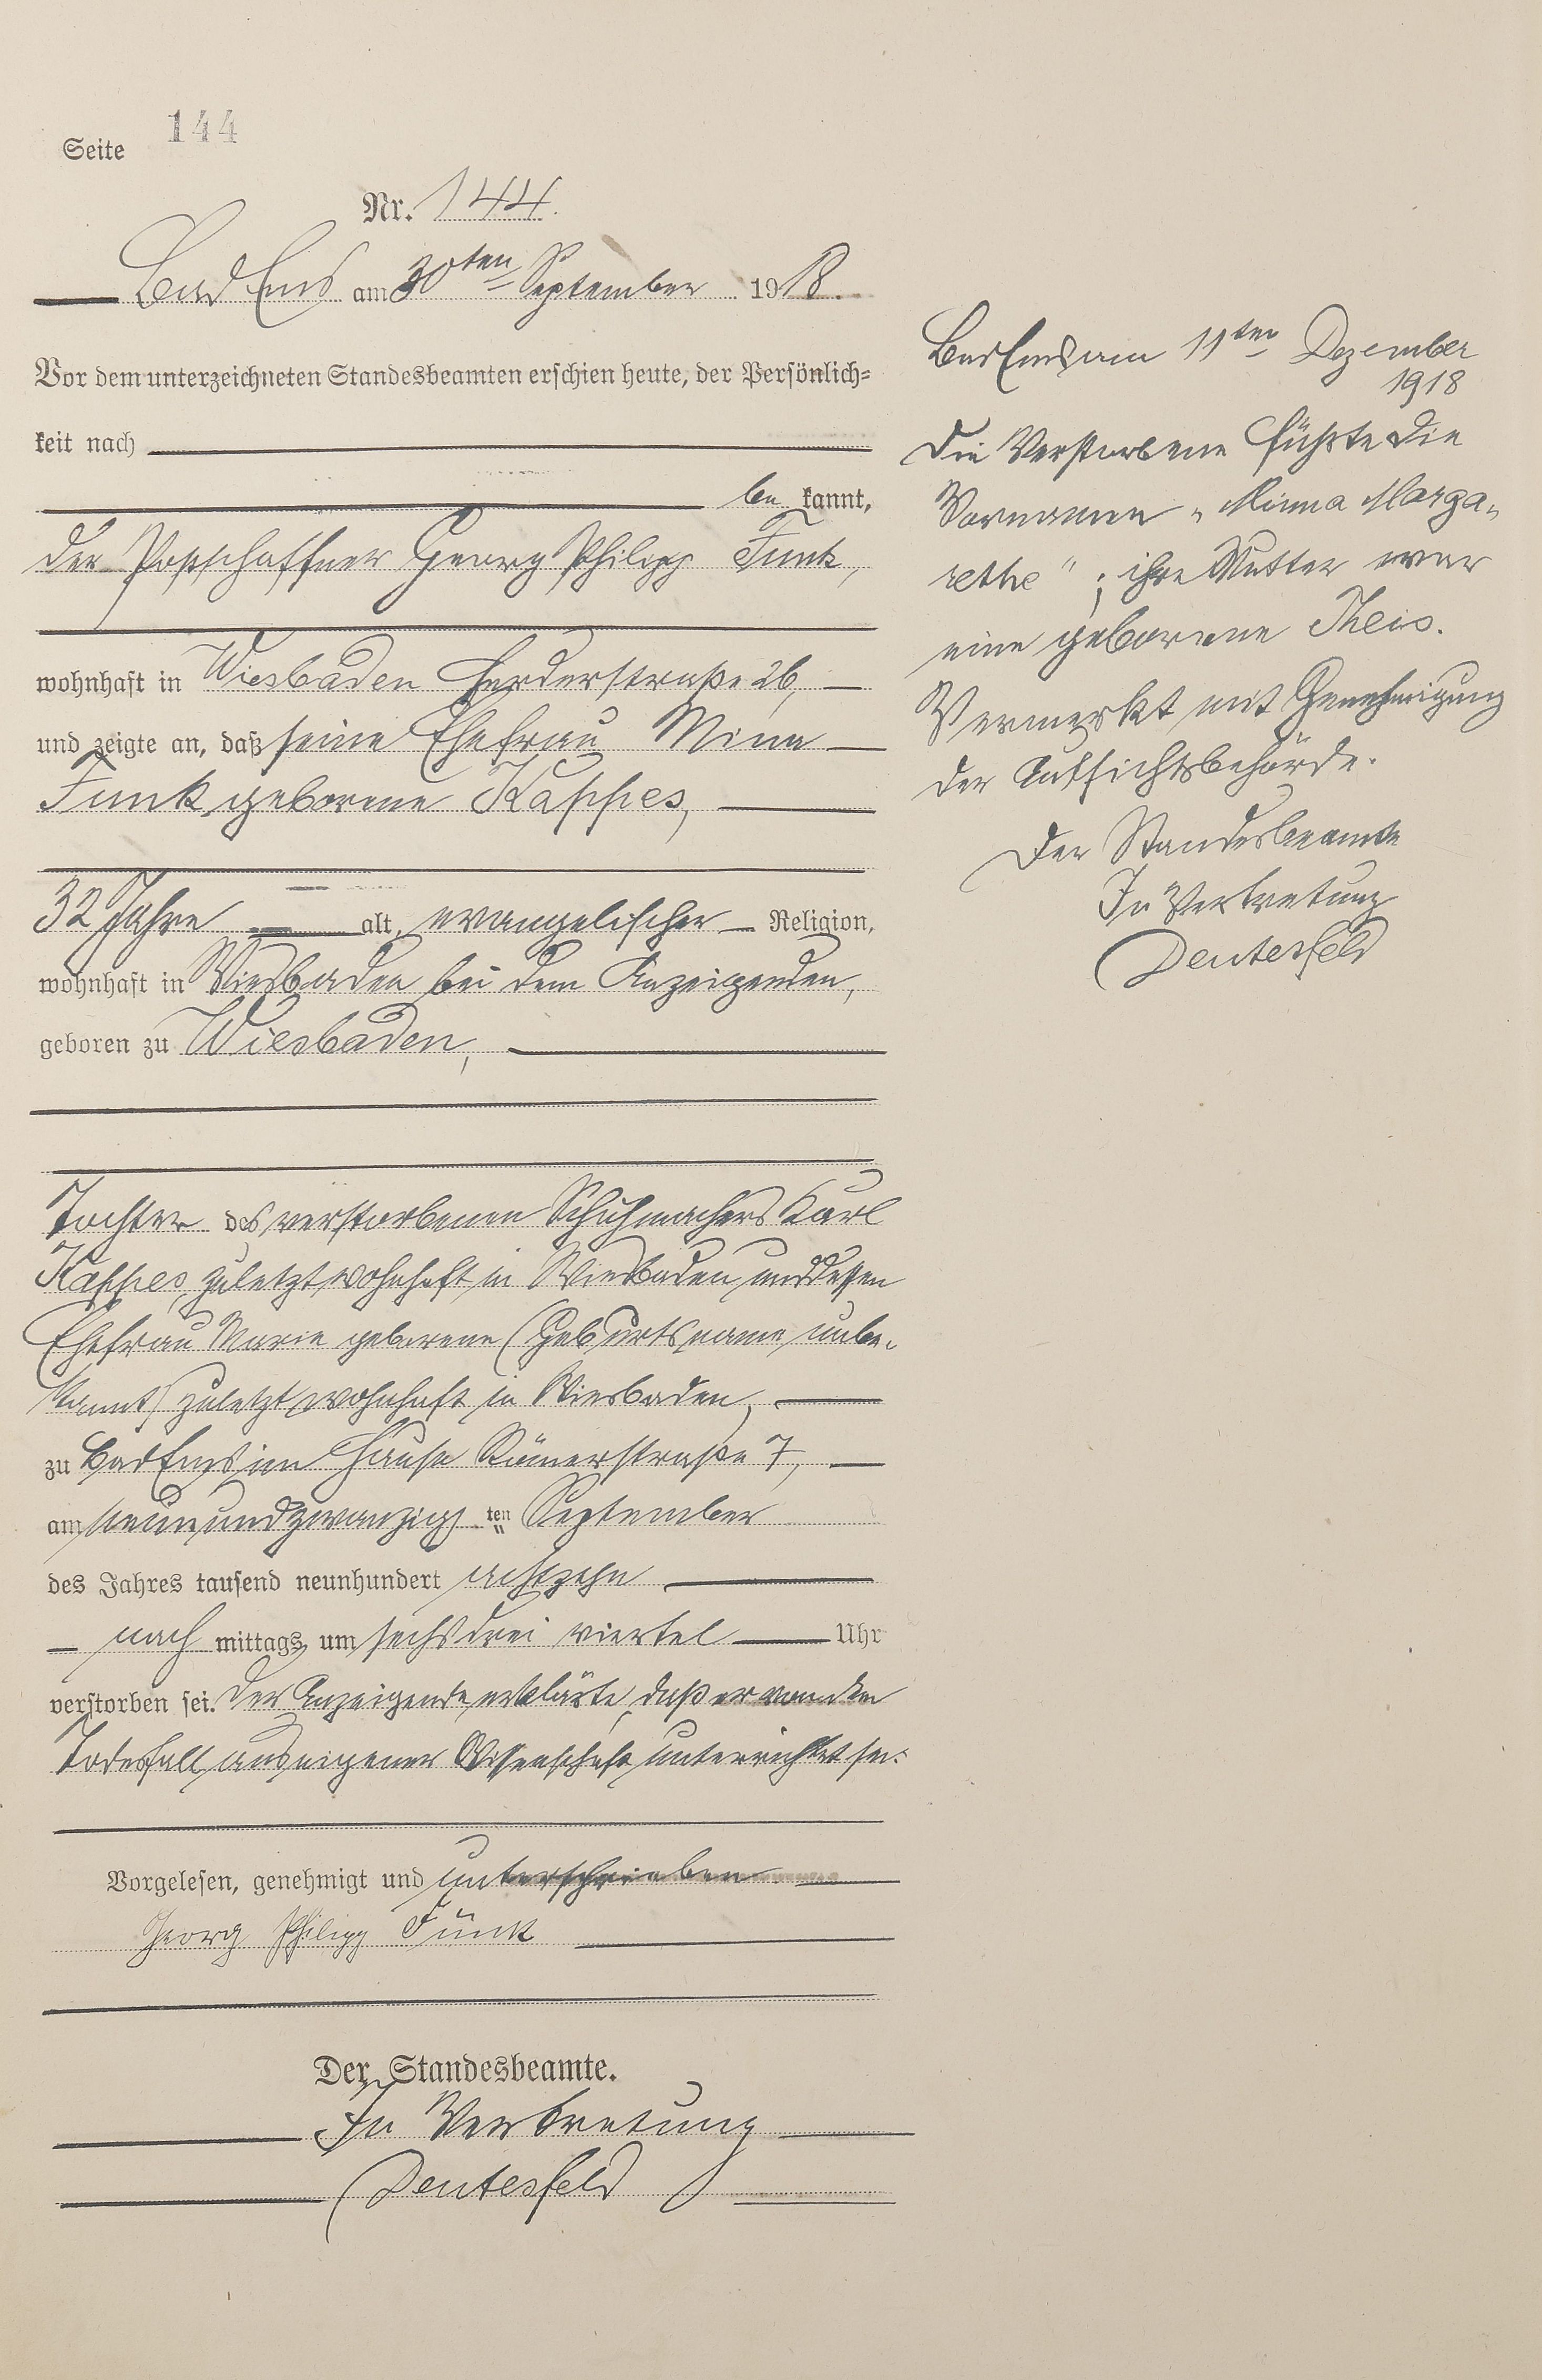 Seite 144
Nr. 144.
Bad Ems am 30ten September 1918.
Vor dem unterzeichneten Standesbeamten erschien heute, der Persönlich-
keit nach
be kannt,
der Postschaffner Georg Philipp Funk,
wohnhaft in Wiesbaden Herderstraße 26,
und zeigte an, daß seine Ehefrau Mina
Funk geborene Kappes,
32 Jahre alt, evangelischer Religion,
wohnhaft in Wiesbaden bei dem Anzeigenden,
geboren zu Wiesbaden,
Tochter des verstorbenen Schuhmachers Karl
Kappes, zuletzt wohnhaft in Wiesbaden und dessen
Ehefrau Marie geborene (Geburtsname unbe-
kannt) zuletzt wohnhaft in Wiesbaden,
zu Bad Ems im Hause Römerstraße 7,
am neunundzwanzigsten September
des Jahres tausend neunhundert achtzehn
nach mittags um sechs drei viertel Uhr
verstorben sei. Der Anzeigende erklärte, daß er von dem
Todesfall aus eigener Wissenschaft unterrichtet sei.
Vorgelesen, genehmigt und unterschrieben
Georg Philipp Funk
Der Standesbeamte.
In Vertretung
Deutesfeld
Bad Ems am 11ten Dezember
1918
Die Verstorbene führte die
Vornamen "Minna Marga-
rethe"; ihre Mutter war
eine geborene Theis.
Vermerkt mit Genehmigung
der Aufsichtsbehörde.
Der Standesbeamte
In Vertretung
Deutesfeld